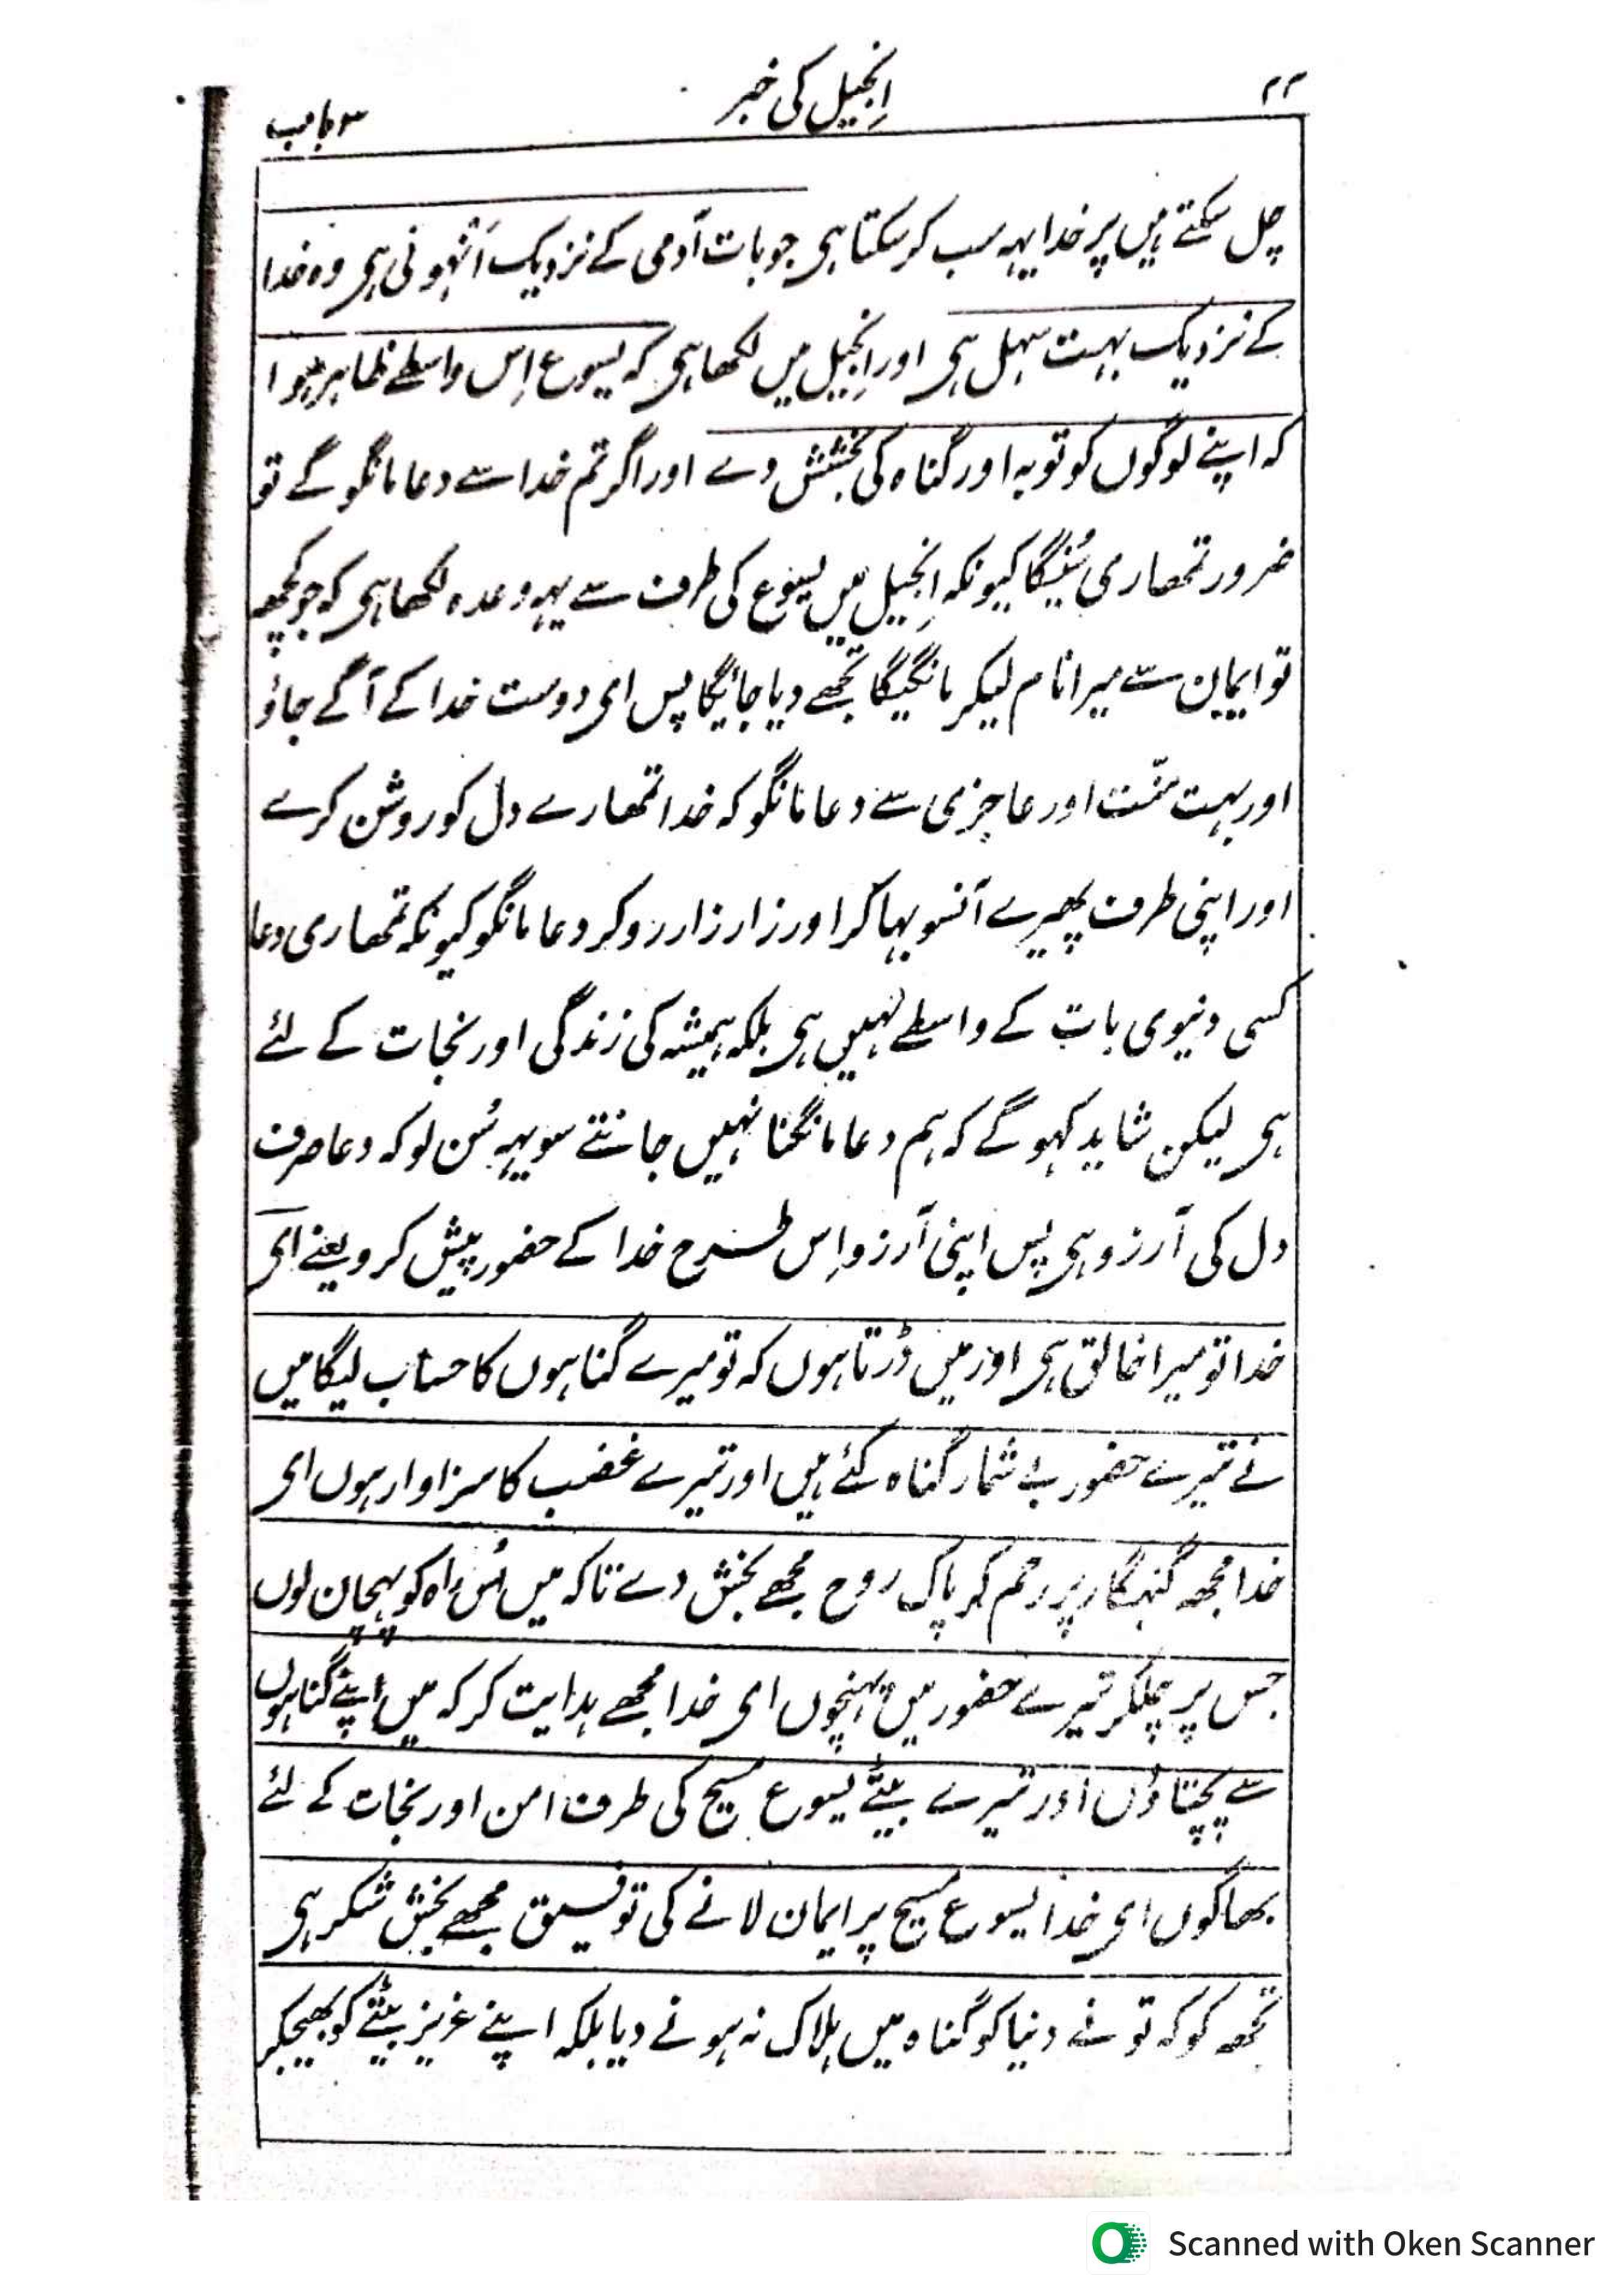 ۲۲
انجیل کی خبر
۳ باب
چل سکتے ہیں پر خدا یہہ سب کر سکتا ہی جو بات آدمی کے نزدیک اَنْہونی ہی وہ خدا
کے نزدیک بہت سہل ہی اور اِنجیل میں لکھا ہی کہ یسوع اِس واسطے ظاہر ہوا
کہ اپنے لوگوں کو توبہ اور گناہ کی بخشش دے اور اگر تم خدا سے دعا مانگو گے تو
ضرور تمھاری سُنیگا کیونکہ اِنجیل میں یسوع کی طرف سے یہہ وعدہ لکھا ہی کہ جو کچھہ
تو ایمان سے میرا نام لیکر مانگیگا تجھے دیا جائیگا پس ای دوست خدا کے آگے جاؤ
اور بہت منّت اور عاجزی سے دعا مانگو کہ خدا تمھارے دل کو روشن کرے
اور اپنی طرف پھیرے آنسو بہا کر اور زار زار رو کر دعا مانگو کیونکہ تمھاری دعا
کسی دنیوی بات کے واسطے نہیں ہی بلکہ ہمیشہ کی زندگی اور نجات کے لئے
ہی لیکن شاید کہو گے کہ ہم دعا مانگنا نہیں جانتے سو یہہ سُن لو کہ دعا صرف
دل کی آرزو ہی پس اپنی آرزو اِس طرح خدا کے حضور پیش کرو یعنے ای
خدا تو میرا خالق ہی اور میں ڈرتا ہوں کہ تو میرے گناہوں کا حساب لیگا میں
نے تیرے حضور بے شمار گناہ کئے ہیں اور تیرے غضب کا سزاوار ہوں ای
خدا مجھہ گنہگار پر رحم کر پاک روح مجھے بخش دے تاکہ میں اُس راہ کو پہچان لوں
جس پر چلکر تیرے حضور میں پہنچوں ای خدا مجھے ہدایت کر کہ میں اپنے گناہوں
سے پچتاؤں اور تیرے بیٹے یسوع مسیح کی طرف امن اور نجات کے لئے
بھاگوں ای خدا یسوع مسیح پر ایمان لانے کی توفیق مجھے بخش شکر ہی
تجھہ کو کہ تو نے دنیا کو گناہ میں ہلاک نہ ہونے دیا بلکہ اپنے عزیز بیٹے کو بھیجکر
Scanned with Oken Scanner